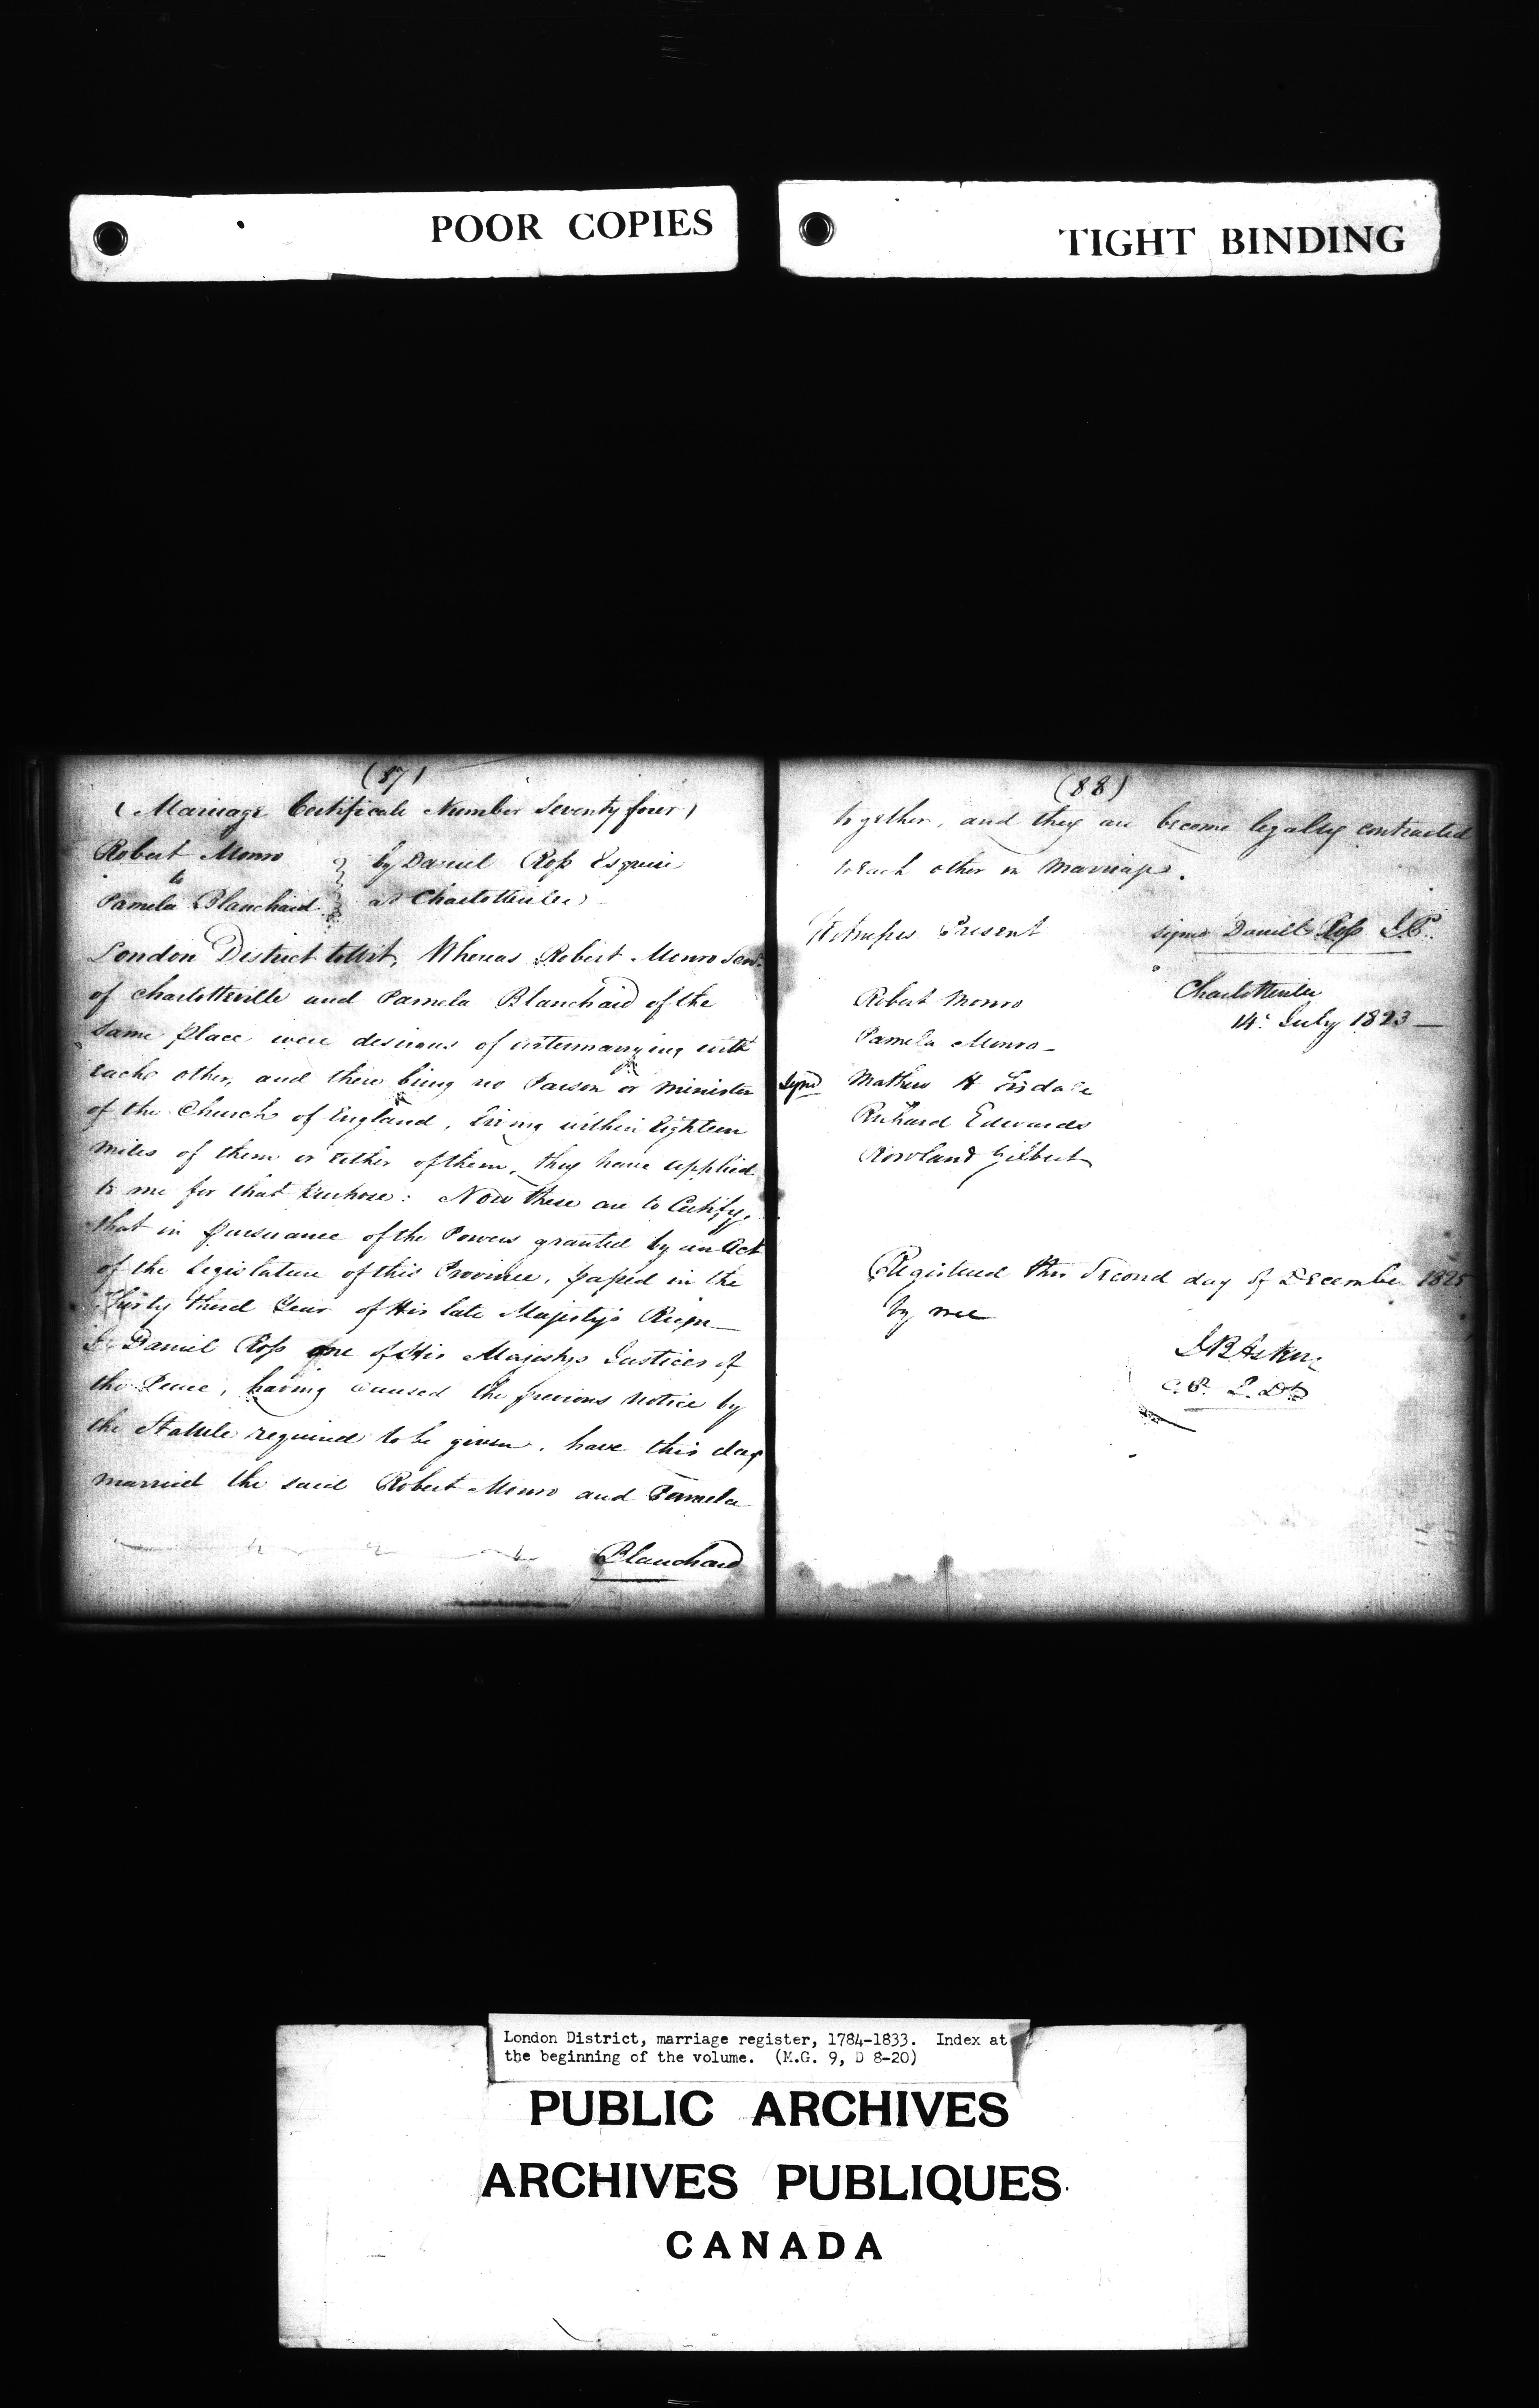 POOR COPIES
TIGHT BINDING
(87)
(Marriage Certificate Number Seventy four)
Robert Monro
to
Pamela Blanchard
by Daniel Ross Esquire
at Charlotteville
London District to Wit, Whereas Robert Monro Senr.
of Charlotteville and Pamela Blanchard of the
same place were desirous of intermarrying with
each other, and there being no Parson or minister
of the Church of England, living within Eighteen
miles of them or either of them, they have applied
to me for that Purpose: Now these are to Certify,
that in pursuance of the Powers granted by an Act
of the Legislature of this Province, passed in the
Thirty third Year of His late Majesty's Reign—
I Daniel Ross one of His Majestys Justices of
the Peace, having caused the previous notice by
the Statute required to be given, have this day
married the said Robert Monro and Pamela
Blanchard
(88)
together, and they are become legally contracted
to each other in Marriage.
Witnesses Present
signed Daniel Ross J.P.
Charlotteville
14th July 1823—
Robert Monro
Pamela Monro—
Signd Mathew H Tisdale
Richard Edwards
Rowland Gilbert
Registered this Second day of December 1825
by me
J B Askin
C. P. L. Dt
London District, marriage register, 1784-1833. Index at
the beginning of the volume. (M.G. 9, D 8-20)
PUBLIC ARCHIVES
ARCHIVES PUBLIQUES
CANADA